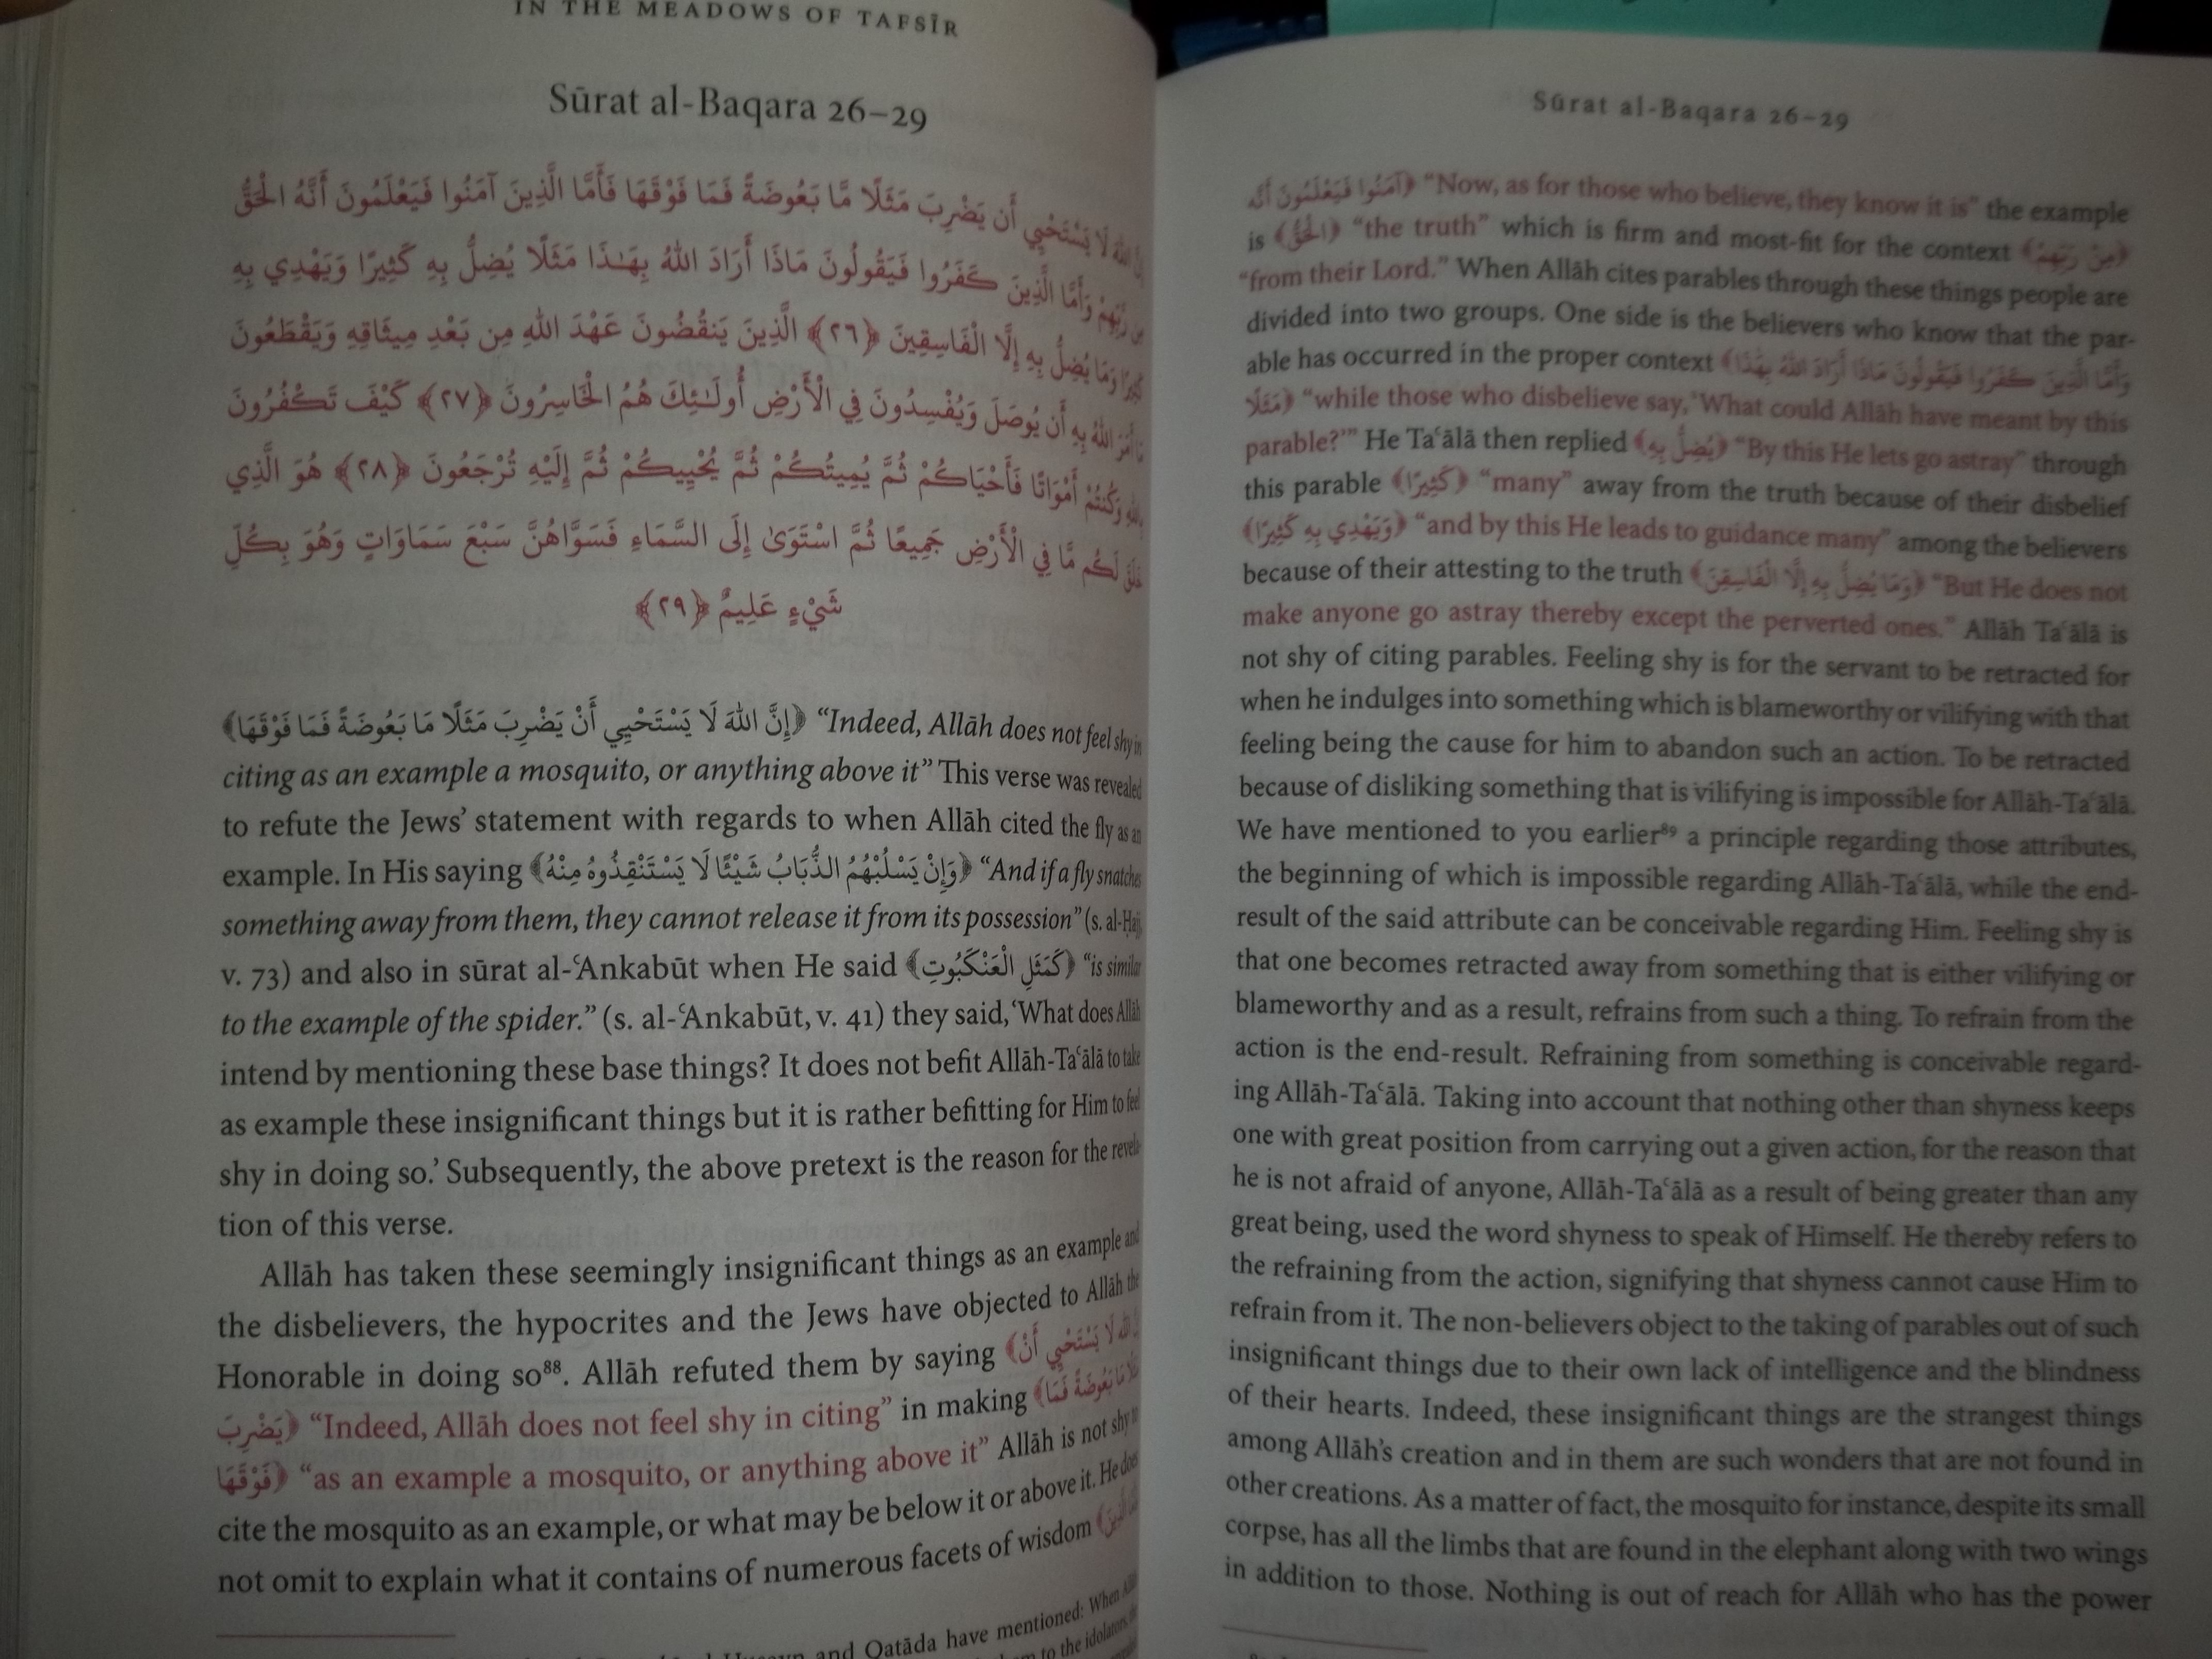 IN THE MEADOWS OF TAFSĪR
Sūrat al-Baqara 26–29
لَا يَسْتَحْيِي أَن يَضْرِبَ مَثَلًا مَّا بَعُوضَةً فَمَا فَوْقَهَا فَأَمَّا الَّذِينَ آمَنُوا فَيَعْلَمُونَ أَنَّهُ الْحَقُّ
مِن رَّبِّهِمْ وَأَمَّا الَّذِينَ كَفَرُوا فَيَقُولُونَ مَاذَا أَرَادَ اللهُ بِهَـٰذَا مَثَلًا يُضِلُّ بِهِ كَثِيرًا وَيَهْدِي بِهِ
وَمَا يُضِلُّ بِهِ إِلَّا الْفَاسِقِينَ ﴿٢٦﴾ الَّذِينَ يَنقُضُونَ عَهْدَ اللهِ مِن بَعْدِ مِيثَاقِهِ وَيَقْطَعُونَ
أَمَرَ اللهُ بِهِ أَن يُوصَلَ وَيُفْسِدُونَ فِي الْأَرْضِ أُولَـٰئِكَ هُمُ الْخَاسِرُونَ ﴿٢٧﴾ كَيْفَ تَكْفُرُونَ
وَكُنتُمْ أَمْوَاتًا فَأَحْيَاكُمْ ثُمَّ يُمِيتُكُمْ ثُمَّ يُحْيِيكُمْ ثُمَّ إِلَيْهِ تُرْجَعُونَ ﴿٢٨﴾ هُوَ الَّذِي
خَلَقَ لَكُم مَّا فِي الْأَرْضِ جَمِيعًا ثُمَّ اسْتَوَىٰ إِلَى السَّمَاءِ فَسَوَّاهُنَّ سَبْعَ سَمَاوَاتٍ وَهُوَ بِكُلِّ
شَيْءٍ عَلِيمٌ ﴿٢٩﴾
﴿إِنَّ اللهَ لَا يَسْتَحْيِي أَنْ يَضْرِبَ مَثَلًا مَا بَعُوضَةً فَمَا فَوْقَهَا﴾ “Indeed, Allāh does not feel shy in
citing as an example a mosquito, or anything above it” This verse was revealed
to refute the Jews’ statement with regards to when Allāh cited the fly as an
example. In His saying ﴿وَإِنْ يَسْلُبْهُمُ الذُّبَابُ شَيْئًا لَا يَسْتَنْقِذُوهُ مِنْهُ﴾ “And if a fly snatches
something away from them, they cannot release it from its possession” (s. al-Ḥajj,
v. 73) and also in sūrat al-ʿAnkabūt when He said ﴿كَمَثَلِ الْعَنْكَبُوتِ﴾ “is similar
to the example of the spider.” (s. al-ʿAnkabūt, v. 41) they said, ‘What does Allāh
intend by mentioning these base things? It does not befit Allāh-Taʿālā to take
as example these insignificant things but it is rather befitting for Him to feel
shy in doing so.’ Subsequently, the above pretext is the reason for the revela-
tion of this verse.
Allāh has taken these seemingly insignificant things as an example and
the disbelievers, the hypocrites and the Jews have objected to Allāh the
Honorable in doing so⁸⁸. Allāh refuted them by saying اللهَ لَا يَسْتَحْيِي أَنْ﴾
يَضْرِبَ﴾ “Indeed, Allāh does not feel shy in citing” in making مَا بَعُوضَةً فَمَا﴾
فَوْقَهَا﴾ “as an example a mosquito, or anything above it” Allāh is not shy to
cite the mosquito as an example, or what may be below it or above it. He does
not omit to explain what it contains of numerous facets of wisdom
and Qatāda have mentioned: When
to the idolators,
Sūrat al-Baqara 26–29
آمَنُوا فَيَعْلَمُونَ أَنَّهُ﴾ “Now, as for those who believe, they know it is” the example
is ﴿الْحَقُّ﴾ “the truth” which is firm and most-fit for the context ﴿مِنْ رَبِّهِمْ﴾
“from their Lord.” When Allāh cites parables through these things people are
divided into two groups. One side is the believers who know that the par-
able has occurred in the proper context ﴿وَأَمَّا الَّذِينَ كَفَرُوا فَيَقُولُونَ مَاذَا أَرَادَ اللهُ بِهَٰذَا
مَثَلًا﴾ “while those who disbelieve say, ‘What could Allāh have meant by this
parable?’” He Taʿālā then replied ﴿يُضِلُّ بِهِ﴾ “By this He lets go astray” through
this parable ﴿كَثِيرًا﴾ “many” away from the truth because of their disbelief
﴿وَيَهْدِي بِهِ كَثِيرًا﴾ “and by this He leads to guidance many” among the believers
because of their attesting to the truth ﴿وَمَا يُضِلُّ بِهِ إِلَّا الْفَاسِقِينَ﴾ “But He does not
make anyone go astray thereby except the perverted ones.” Allāh Taʿālā is
not shy of citing parables. Feeling shy is for the servant to be retracted for
when he indulges into something which is blameworthy or vilifying with that
feeling being the cause for him to abandon such an action. To be retracted
because of disliking something that is vilifying is impossible for Allāh-Taʿālā.
We have mentioned to you earlier⁸⁹ a principle regarding those attributes,
the beginning of which is impossible regarding Allāh-Taʿālā, while the end-
result of the said attribute can be conceivable regarding Him. Feeling shy is
that one becomes retracted away from something that is either vilifying or
blameworthy and as a result, refrains from such a thing. To refrain from the
action is the end-result. Refraining from something is conceivable regard-
ing Allāh-Taʿālā. Taking into account that nothing other than shyness keeps
one with great position from carrying out a given action, for the reason that
he is not afraid of anyone, Allāh-Taʿālā as a result of being greater than any
great being, used the word shyness to speak of Himself. He thereby refers to
the refraining from the action, signifying that shyness cannot cause Him to
refrain from it. The non-believers object to the taking of parables out of such
insignificant things due to their own lack of intelligence and the blindness
of their hearts. Indeed, these insignificant things are the strangest things
among Allāh’s creation and in them are such wonders that are not found in
other creations. As a matter of fact, the mosquito for instance, despite its small
corpse, has all the limbs that are found in the elephant along with two wings
in addition to those. Nothing is out of reach for Allāh who has the power